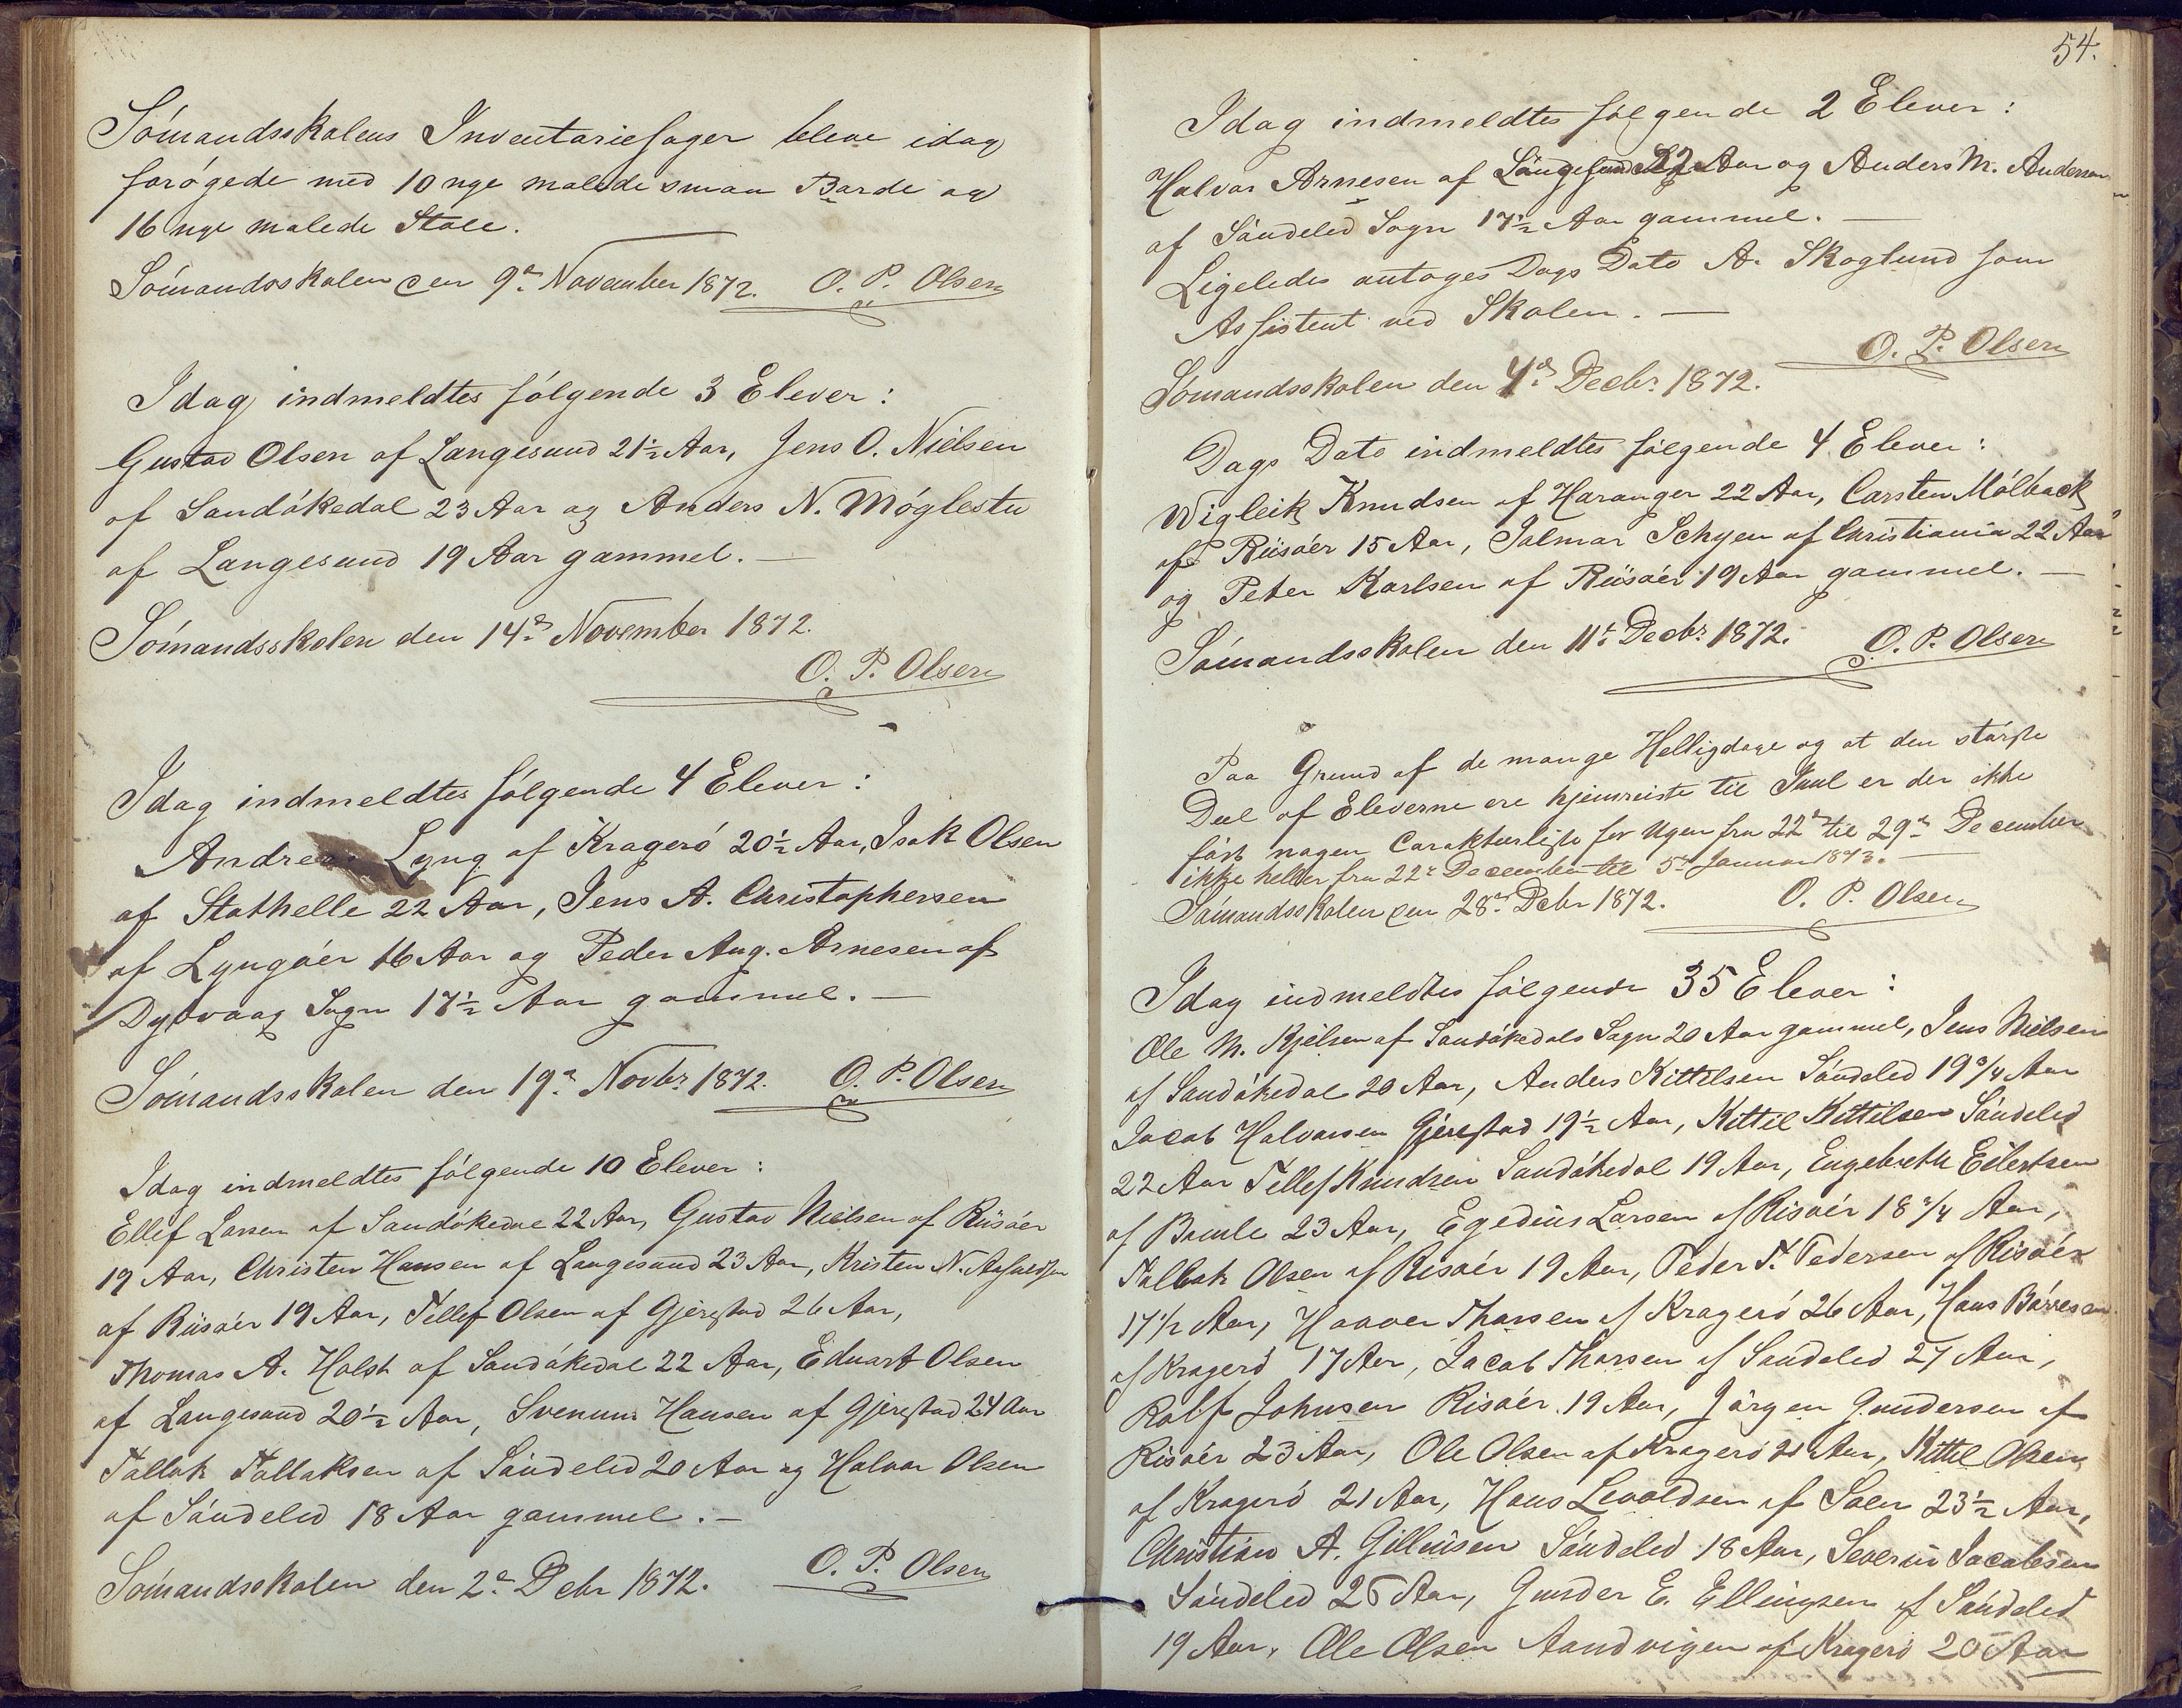 Sömandsskolens Inventariesager bleve idag
forögede med 10 nye malede smaa Borde og
16 nye malede Stole.
Sömandsskolen den 9de November 1872. O. P. Olsen
Idag indmeldtes fölgende 3 Elever:
Gustav Olsen af Langesund 21½ Aar, Jens O. Nielsen
af Sandökedal 23 Aar og Anders N. Möglestu
af Langesund 19 Aar gammel. —
Sömandsskolen den 14de November 1872.
O. P. Olsen
Idag indmeldtes fölgende 4 Elever:
Andreas Lyng af Kragerö 20½ Aar, Isak Olsen
af Stathelle 22 Aar, Jens A. Christophersen
af Lyngöer 16 Aar og Peder Aug. Arnesen af
Dybvaag Sogn 17½ Aar gammel. —
Sömandsskolen den 19de Novbr. 1872. O. P. Olsen
Idag indmeldtes fölgende 10 Elever:
Ellef Larsen af Sandökedal 22 Aar, Gustav Nielsen af Riisöer
19 Aar, Christen Hansen af Langesund 23 Aar, Kristen N.
af Riisöer 19 Aar, Tellef Olsen af Gjerestad 26 Aar,
Thomas A. Holst af Sandökedal 22 Aar, Eduart Olsen
af Langesund 20½ Aar, Svenum Hansen af Gjerestad 24 Aar
Tallak Tallaksen af Söndeled 20 Aar og Halvor Olsen
af Söndeled 18 Aar gammel. —
Sömandsskolen den 2de Debr 1872. O. P. Olsen
54.
Idag indmeldtes fölgende 2 Elever:
Halvor Arnesen af Langesund 22 Aar og Anders M. Andersen
af Söndeled Sogn 17½ Aar gammel. —
Ligeledes antoges Dags Dato A. Skoglund som
Assistent ved Skolen. —
O. P. Olsen
Sömandsskolen den 4de Decbr. 1872.
Dags Dato indmeldtes fölgende 4 Elever:
Wigleik Knudsen af Haranger 22 Aar, Carsten Mölback
af Riisöer 15 Aar, Jalmar Schyen af Christiania 22 Aar
og Peter Karlsen af Riisöer 19 Aar gammel. —
Sömandsskolen den 11te Decbr. 1872. O. P. Olsen
Paa Grund af de mange Helligdage og at den störste
Deel af Eleverne ere hjemreiste til Juul er der ikke
fört nogen Carakteerliste for Ugen fra 22de til 29de December
ikke heller fra 22de December til 5te Januar 1873. —
Sömandsskolen den 28de Debr 1872. O. P. Olsen
Idag indmeldtes fölgende 35 Elever:
Ole M. Kjelsen af Sandökedals Sogn 20 Aar gammel, Jens Nielsen
af Sandökedal 20 Aar, Anders Kittelsen Söndeled 19 3/4 Aar
Jacob Halvorsen Gjerestad 19½ Aar, Kittil Kittilsen Söndeled
22 Aar Tellef Knudsen Sandökedal 19 Aar, Engebreth Eilertsen
af Bamle 23 Aar, Egedius Larsen af Risöer 18 3/4 Aar,
Tallak Olsen af Risöer 19 Aar, Peder T. Pedersen af Risöer
17 1/2 Aar, Haaver Thorsen af Kragerö 26 Aar, Hans Börresen
af Kragerö 17 Aar, Jacob Thorsen af Söndeled 27 Aar,
Rolf Johnsen Risöer 19 Aar, Jörgen Gundersen af
Risöer 23 Aar, Ole Olsen af Kragerö 21 Aar, Kittil Olsen
af Kragerö 21 Aar, Hans Levoldsen af Solen 23½ Aar,
Christian A. Gillusen Söndeled 18 Aar, Severin Jacobsen
Söndeled 25 Aar, Gunder E. Ellingsen af Söndeled
19 Aar, Ole Olsen Aandvigen af Kragerö 20 Aar